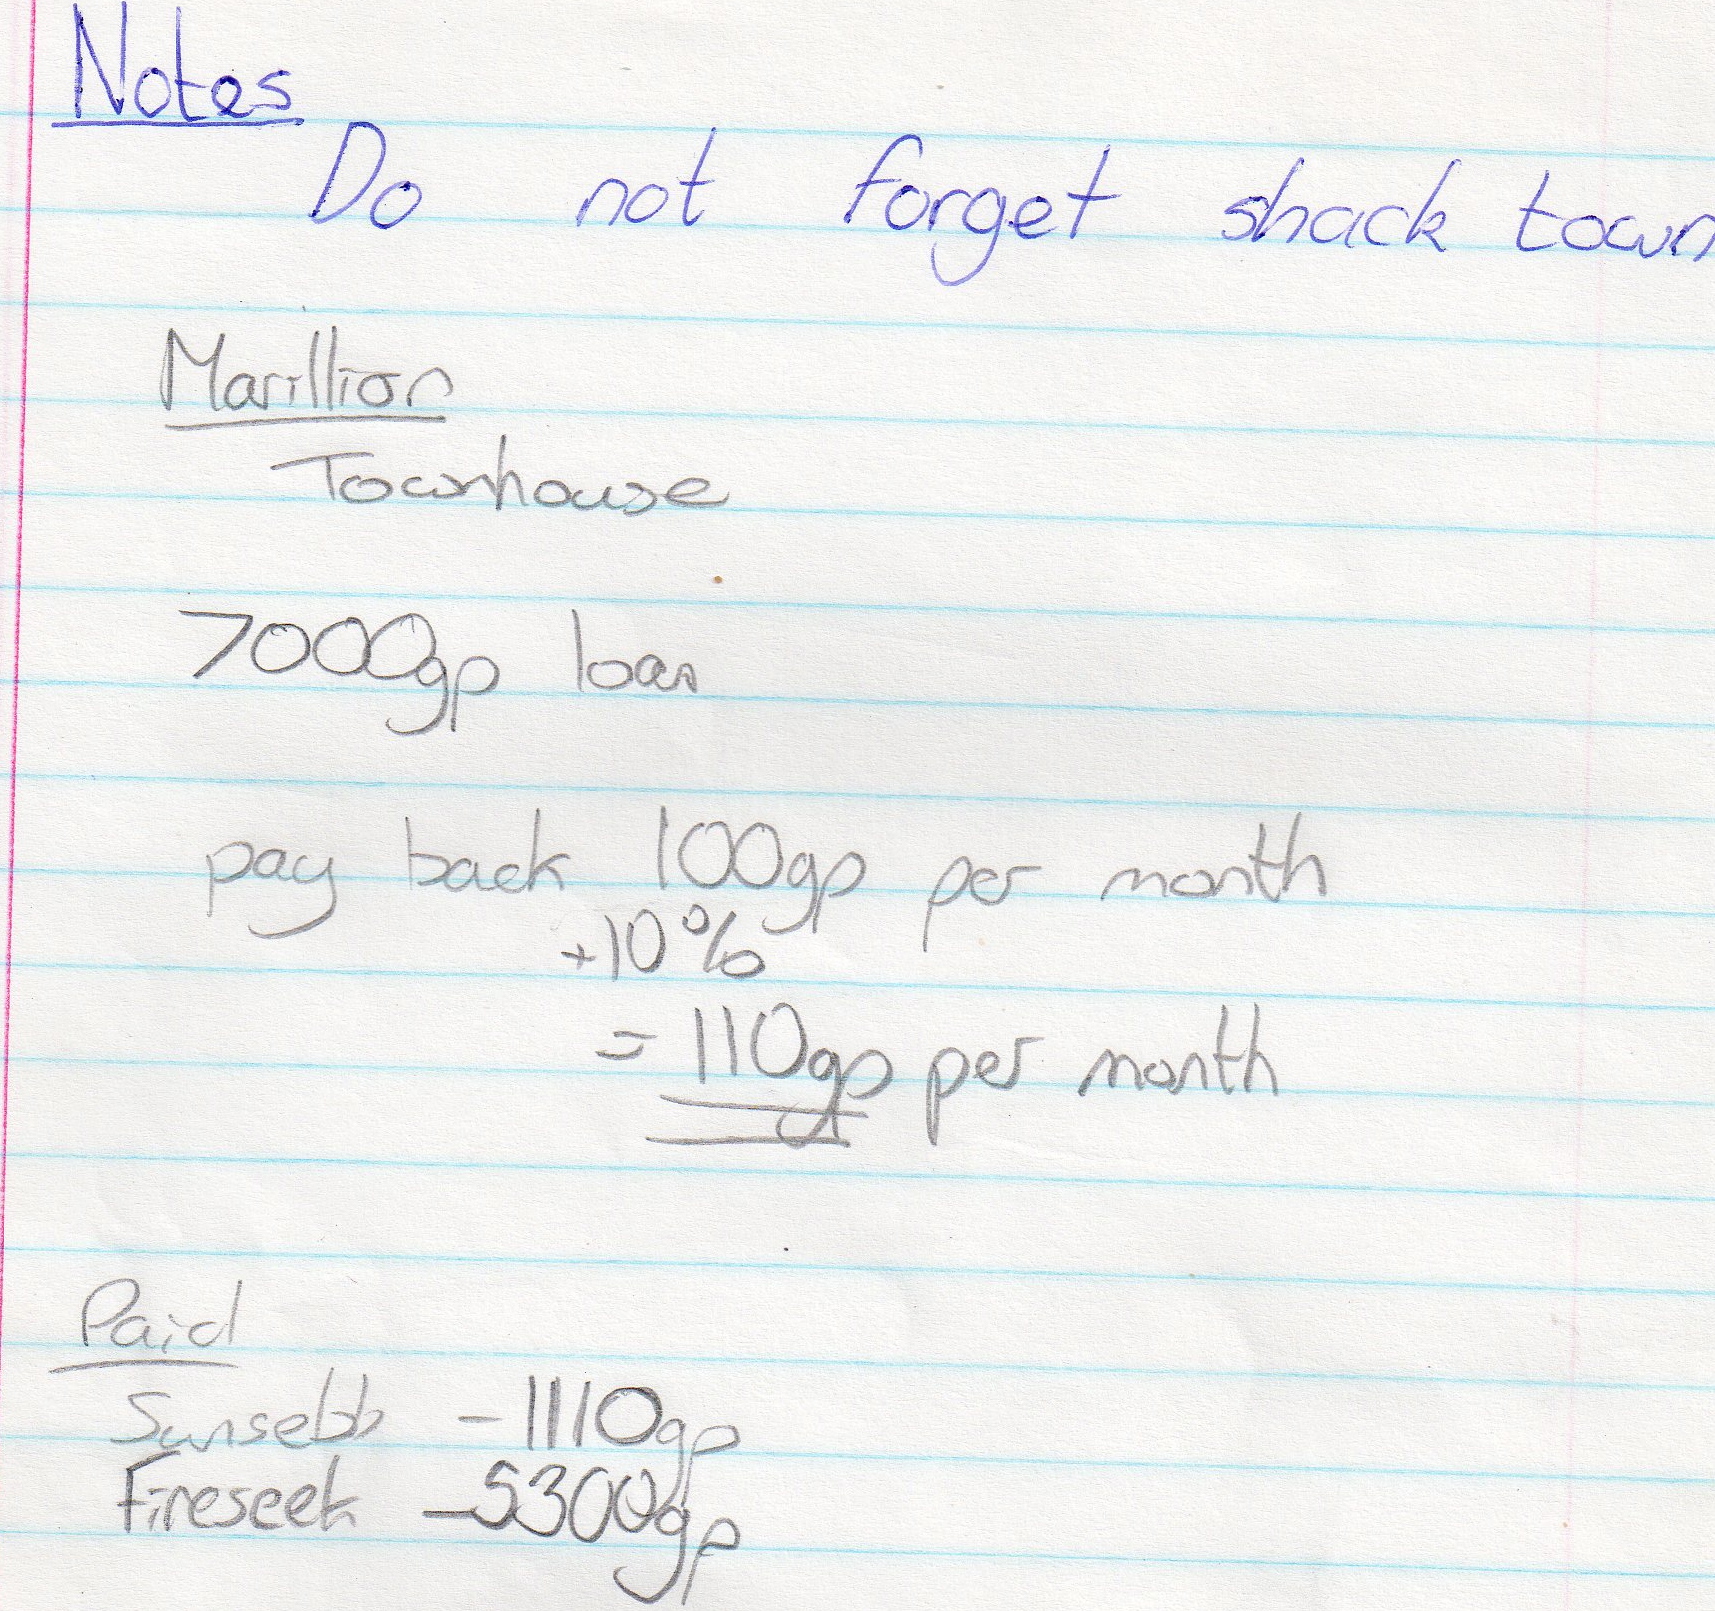 Notes
Do not forget shack town
Marillion
Townhouse
7000gp loan
pay back 100gp per month
+10%
= 110gp per month
Paid
Sunsebb - 1110gp
Fireseek - 5300gp